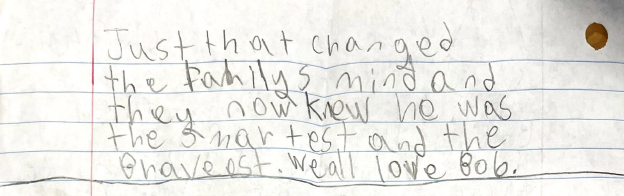 Just that changed
the familys mind and
they now knew he was
the smartest and the
Braveest. We all love Bob.